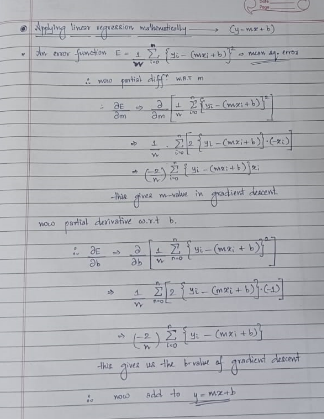 Applying linear regression mathematically → (y=mx+b)
An error function E = 1/n Σ i=0 n {yi - (mxi+b)}² = mean sq. error
∴ now partial diffⁿ w.r.t m
∴ ∂E/∂m ⇒ ∂/∂m [1/n Σ i=0 n {yi - (mxi+b)}²]
⇒ 1/n · Σ i=0 n [2 {yi - (mxi+b)}·(-xi)]
⇒ (-2/n) Σ i=0 n {yi - (mxi+b)} xi
- this gives m-value in gradient descent.
now partial derivative w.r.t b.
∴ ∂E/∂b ⇒ ∂/∂b [1/n Σ n=0 n {yi - (mxi+b)}²]
⇒ 1/n Σ n=0 n [2 {yi - (mxi+b)}·(-1)]
⇒ (-2/n) Σ i=0 n {yi - (mxi+b)}
- this gives us the b-value of gradient descent
∴ now add to y=mx+b